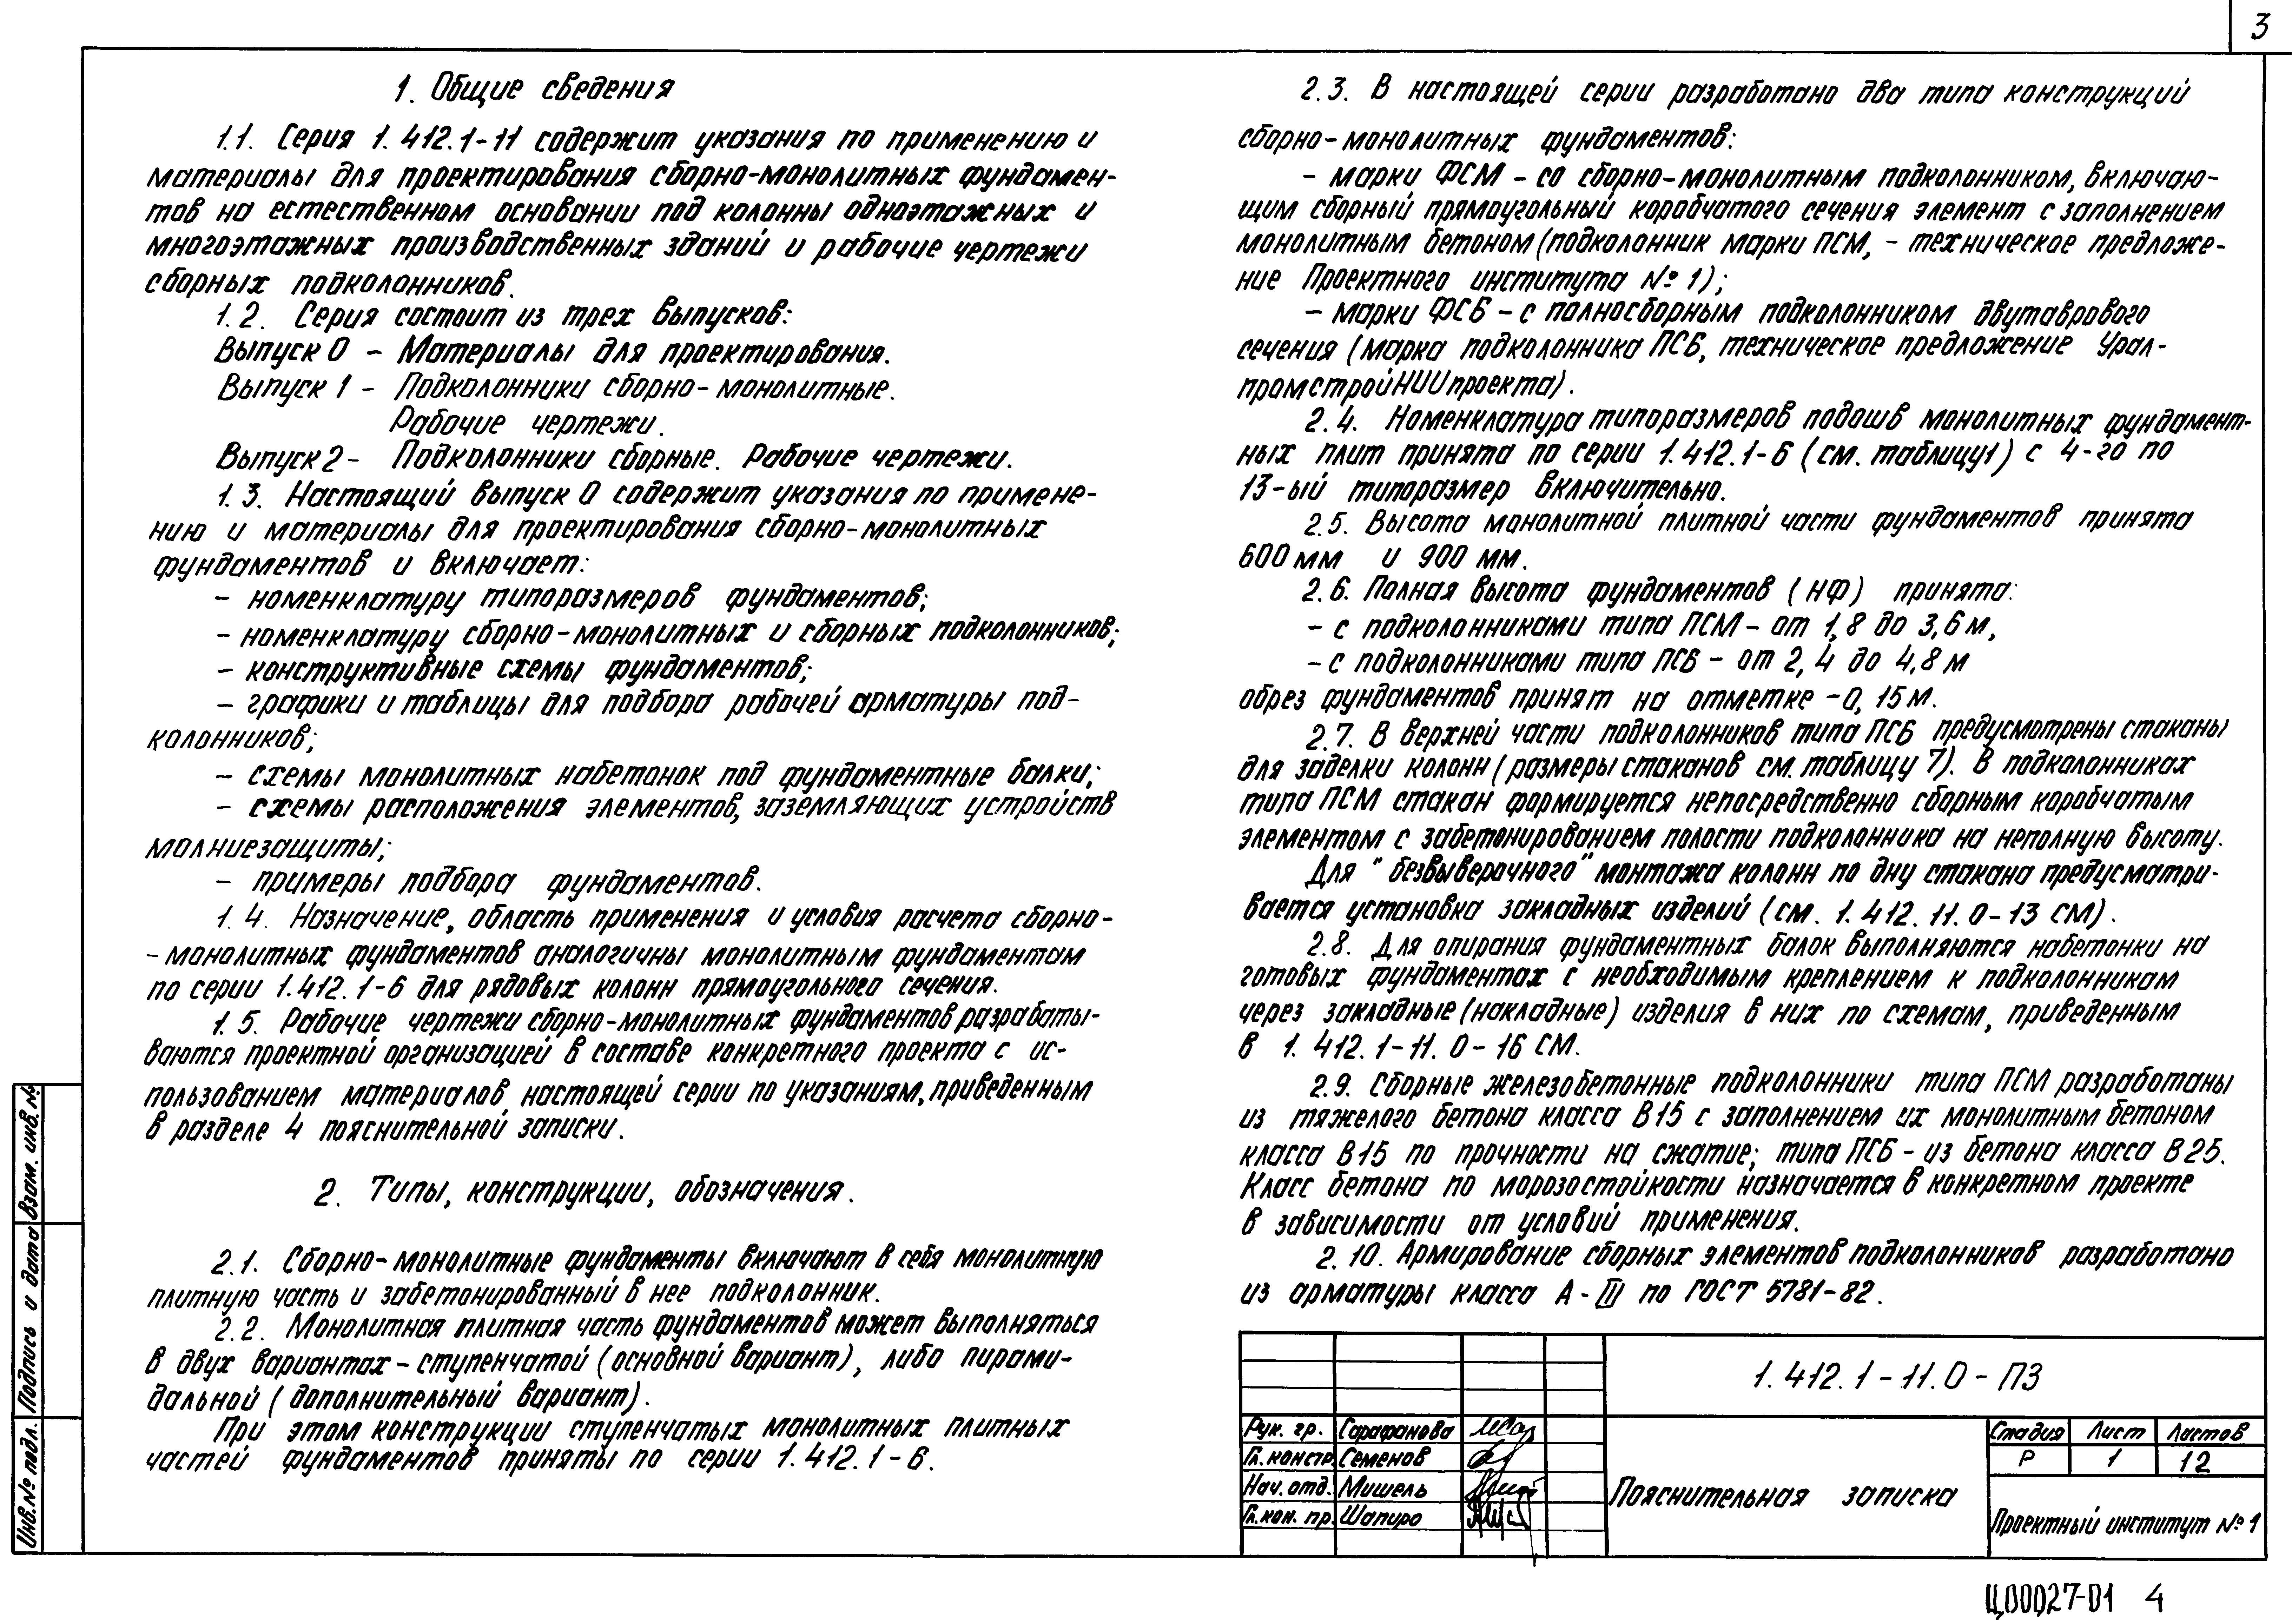 3
1. Общие сведения
1.1. Серия 1.412.1-11 содержит указания по применению и
материалы для проектирования сборно-монолитных фундамен-
тов на естественном основании под колонны одноэтажных и
многоэтажных производственных зданий и рабочие чертежи
сборных подколонников.
1.2. Серия состоит из трех выпусков:
Выпуск 0 - Материалы для проектирования.
Выпуск 1 - Подколонники сборно-монолитные.
Рабочие чертежи.
Выпуск 2 - Подколонники сборные. Рабочие чертежи.
1.3. Настоящий выпуск 0 содержит указания по примене-
нию и материалы для проектирования сборно-монолитных
фундаментов и включает:
- номенклатуру типоразмеров фундаментов;
- номенклатуру сборно-монолитных и сборных подколонников;
- конструктивные схемы фундаментов;
- графики и таблицы для подбора рабочей арматуры под-
колонников;
- схемы монолитных набетонок под фундаментные балки;
- схемы расположения элементов, заземляющих устройств
молниезащиты;
- примеры подбора фундаментов.
1.4. Назначение, область применения и условия расчета сборно-
-монолитных фундаментов аналогичны монолитным фундаментам
по серии 1.412.1-6 для рядовых колонн прямоугольного сечения.
1.5. Рабочие чертежи сборно-монолитных фундаментов разрабаты-
ваются проектной организацией в составе конкретного проекта с ис-
пользованием материалов настоящей серии по указаниям, приведенным
в разделе 4 пояснительной записки.
2. Типы, конструкции, обозначения.
2.1. Сборно-монолитные фундаменты включают в себя монолитную
плитную часть и забетонированный в нее подколонник.
2.2. Монолитная плитная часть фундаментов может выполняться
в двух вариантах - ступенчатой (основной вариант), либо пирами-
дальной (дополнительный вариант).
При этом конструкции ступенчатых монолитных плитных
частей фундаментов приняты по серии 1.412.1-6.
2.3. В настоящей серии разработано два типа конструкций
сборно-монолитных фундаментов:
- марки ФСМ - со сборно-монолитным подколонником, включаю-
щим сборный прямоугольный коробчатого сечения элемент с заполнением
монолитным бетоном (подколонник марки ПСМ, - техническое предложе-
ние Проектного института № 1);
- марки ФСБ - с полносборным подколонником двутаврового
сечения (марка подколонника ПСБ, техническое предложение Урал-
промстройНИИпроекта).
2.4. Номенклатура типоразмеров подошв монолитных фундамент-
ных плит принята по серии 1.412.1-6 (см. таблицу1) с 4-го по
13-ый типоразмер включительно.
2.5. Высота монолитной плитной части фундаментов принята
600 мм и 900 мм.
2.6. Полная высота фундаментов (НФ) принята:
- с подколонниками типа ПСМ - от 1,8 до 3,6 м,
- с подколонниками типа ПСБ - от 2,4 до 4,8 м
обрез фундаментов принят на отметке -0,15 м.
2.7. В верхней части подколонников типа ПСБ предусмотрены стаканы
для заделки колонн (размеры стаканов см. таблицу 7). В подколонниках
типа ПСМ стакан формируется непосредственно сборным коробчатым
элементом с забетонированием полости подколонника на неполную высоту.
Для "безвыверочного" монтажа колонн по дну стакана предусматри-
вается установка закладных изделий (см. 1.412.11.0-13 СМ).
2.8. Для опирания фундаментных балок выполняются набетонки на
готовых фундаментах с необходимым креплением к подколонникам
через закладные (накладные) изделия в них по схемам, приведенным
в 1.412.1-11.0-16 СМ.
2.9. Сборные железобетонные подколонники типа ПСМ разработаны
из тяжелого бетона класса В15 с заполнением их монолитным бетоном
класса В15 по прочности на сжатие; типа ПСБ - из бетона класса В25.
Класс бетона по морозостойкости назначается в конкретном проекте
в зависимости от условий применения.
2.10. Армирование сборных элементов подколонников разработано
из арматуры класса А-III по ГОСТ 5781-82.
1.412.1-11.0-ПЗ
Рук. гр. Сарафанова
Гл. констр. Семенов
Нач. отд. Мишель
Гл. кон. пр. Шапиро
Пояснительная записка
Стадия Лист Листов
Р 1 12
Проектный институт № 1
Инв. № подл. Подпись и дата Взам. инв. №
Ц00027-01 4